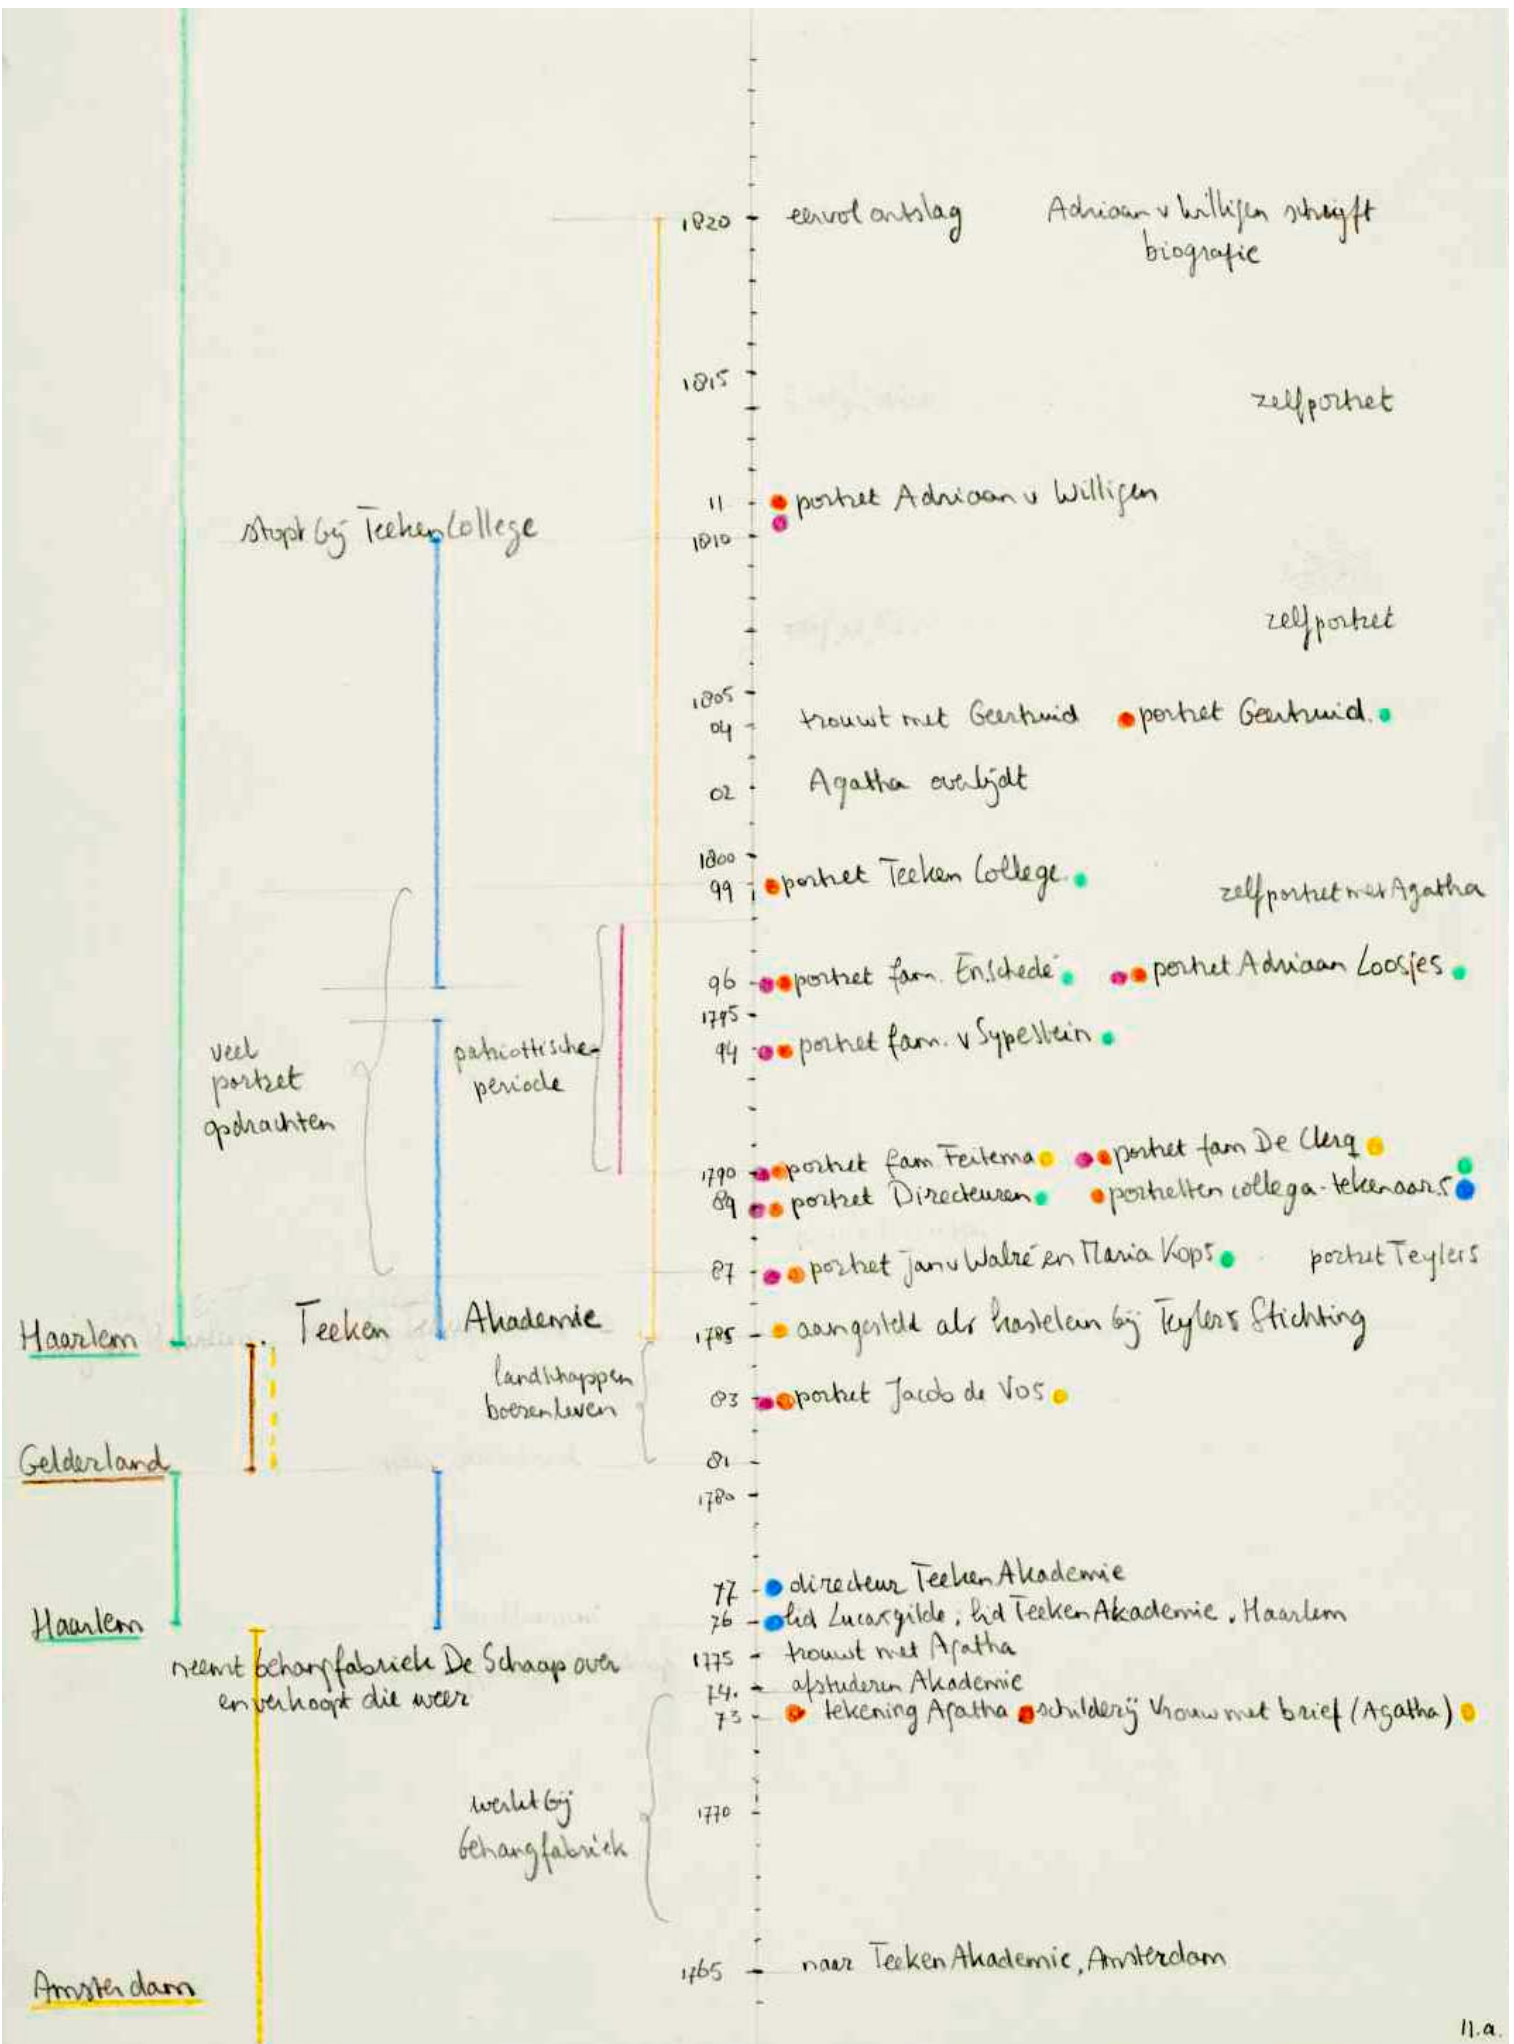 1820 eervol ontslag Adriaan v Willigen schrijft
biografie
1815
zelfportret
11 portret Adriaan v Willigen
stopt bij Teeken College
1810
zelfportret
1805
04 trouwt met Geertruid portret Geertruid
02 Agatha overlijdt
1800
99 portret Teeken College
zelfportret met Agatha
96 portret fam. Enschedé portret Adriaan Loosjes
1795
94 portret fam. v Sypestein
veel
portret
opdrachten
patriottische
periode
1790 portret fam Feitema portret fam De Clerq
89 portret Directeuren portretten collega-tekenaars
87 portret Jan v Walré en Maria Kops portret Teylers
Haarlem Teeken Akademie 1785 aangesteld als kastelein bij Teylers Stichting
landschappen
boerenleven
83 portret Jacob de Vos
Gelderland 81
1780
77 directeur Teeken Akademie
Haarlem 76 lid Lucasgilde, lid Teeken Akademie, Haarlem
neemt behangfabriek De Schaap over
en verkoopt die weer
1775 trouwt met Agatha
74. afstuderen Akademie
73 tekening Agatha schilderij Vrouw met brief (Agatha)
werkt bij
behangfabriek
1770
1765 naar Teeken Akademie, Amsterdam
Amsterdam
11.a.